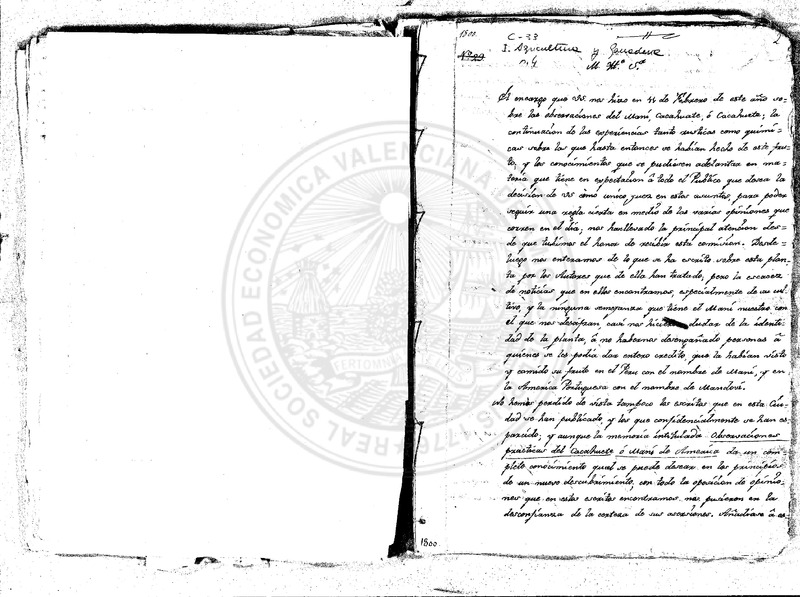 1800.
C-33
2
I. Agricultura y Ganaderia
Nº 29
n. 4
M. Ille. Sr.
El encargo que VS. nos hizo en 11 de Febrero de este año so=
bre las observaciones del Maní, Cacahuate, ó Cacahuete; la
continuacion de las experiencias tanto rusticas como quimi=
cas sobre las que hasta entonces se habian hecho de este fru=
to, y los conocimientos que se pudiesen adelantar en ma=
teria que tiene en expectacion á todo el Publico que desea la
decision de VS como unico juez en estos asuntos, para poder
seguir una regla cierta en medio de las varias opiniones que
corren en el dia; nos han llevado la principal atencion des=
de que tubimos el honor de recibir esta comision. Desde=
luego nos enteramos de lo que se ha escrito sobre esta plan=
ta por los Autores que de ella han tratado; pero la escasez
de noticias, que en ellos encontramos, especialmente de su cul=
tivo, y la ninguna semejanza que tiene el Maní nuestro con
el que nos descifran, casi nos hicieron dudar de la identi=
dad de la planta, á no habernos desengañado personas á
quienes se les podia dar entero credito, que la habian visto
y comido su fruto en el Peru con el nombre de Maní, y en
la America Portuguesa con el nombre de Mandoví.
No hemos perdido de vista tampoco los escritos que en esta Ciu=
dad se han publicado, y los que confidencialmente se han es=
parcido; y aunque la memoria intitulada Observaciones
practicas del Cacahuete ó Maní de America da un com=
pleto conocimiento qual se puede desear en los principios
de un nuevo descubrimiento, con todo la oposicion de opinio=
nes que en estos escritos encontramos nos pusieron en la
desconfianza de la certeza de sus aserciones. Añadiase á es=
1800.
REAL SOCIEDAD ECONOMICA VALENCIANA
1776